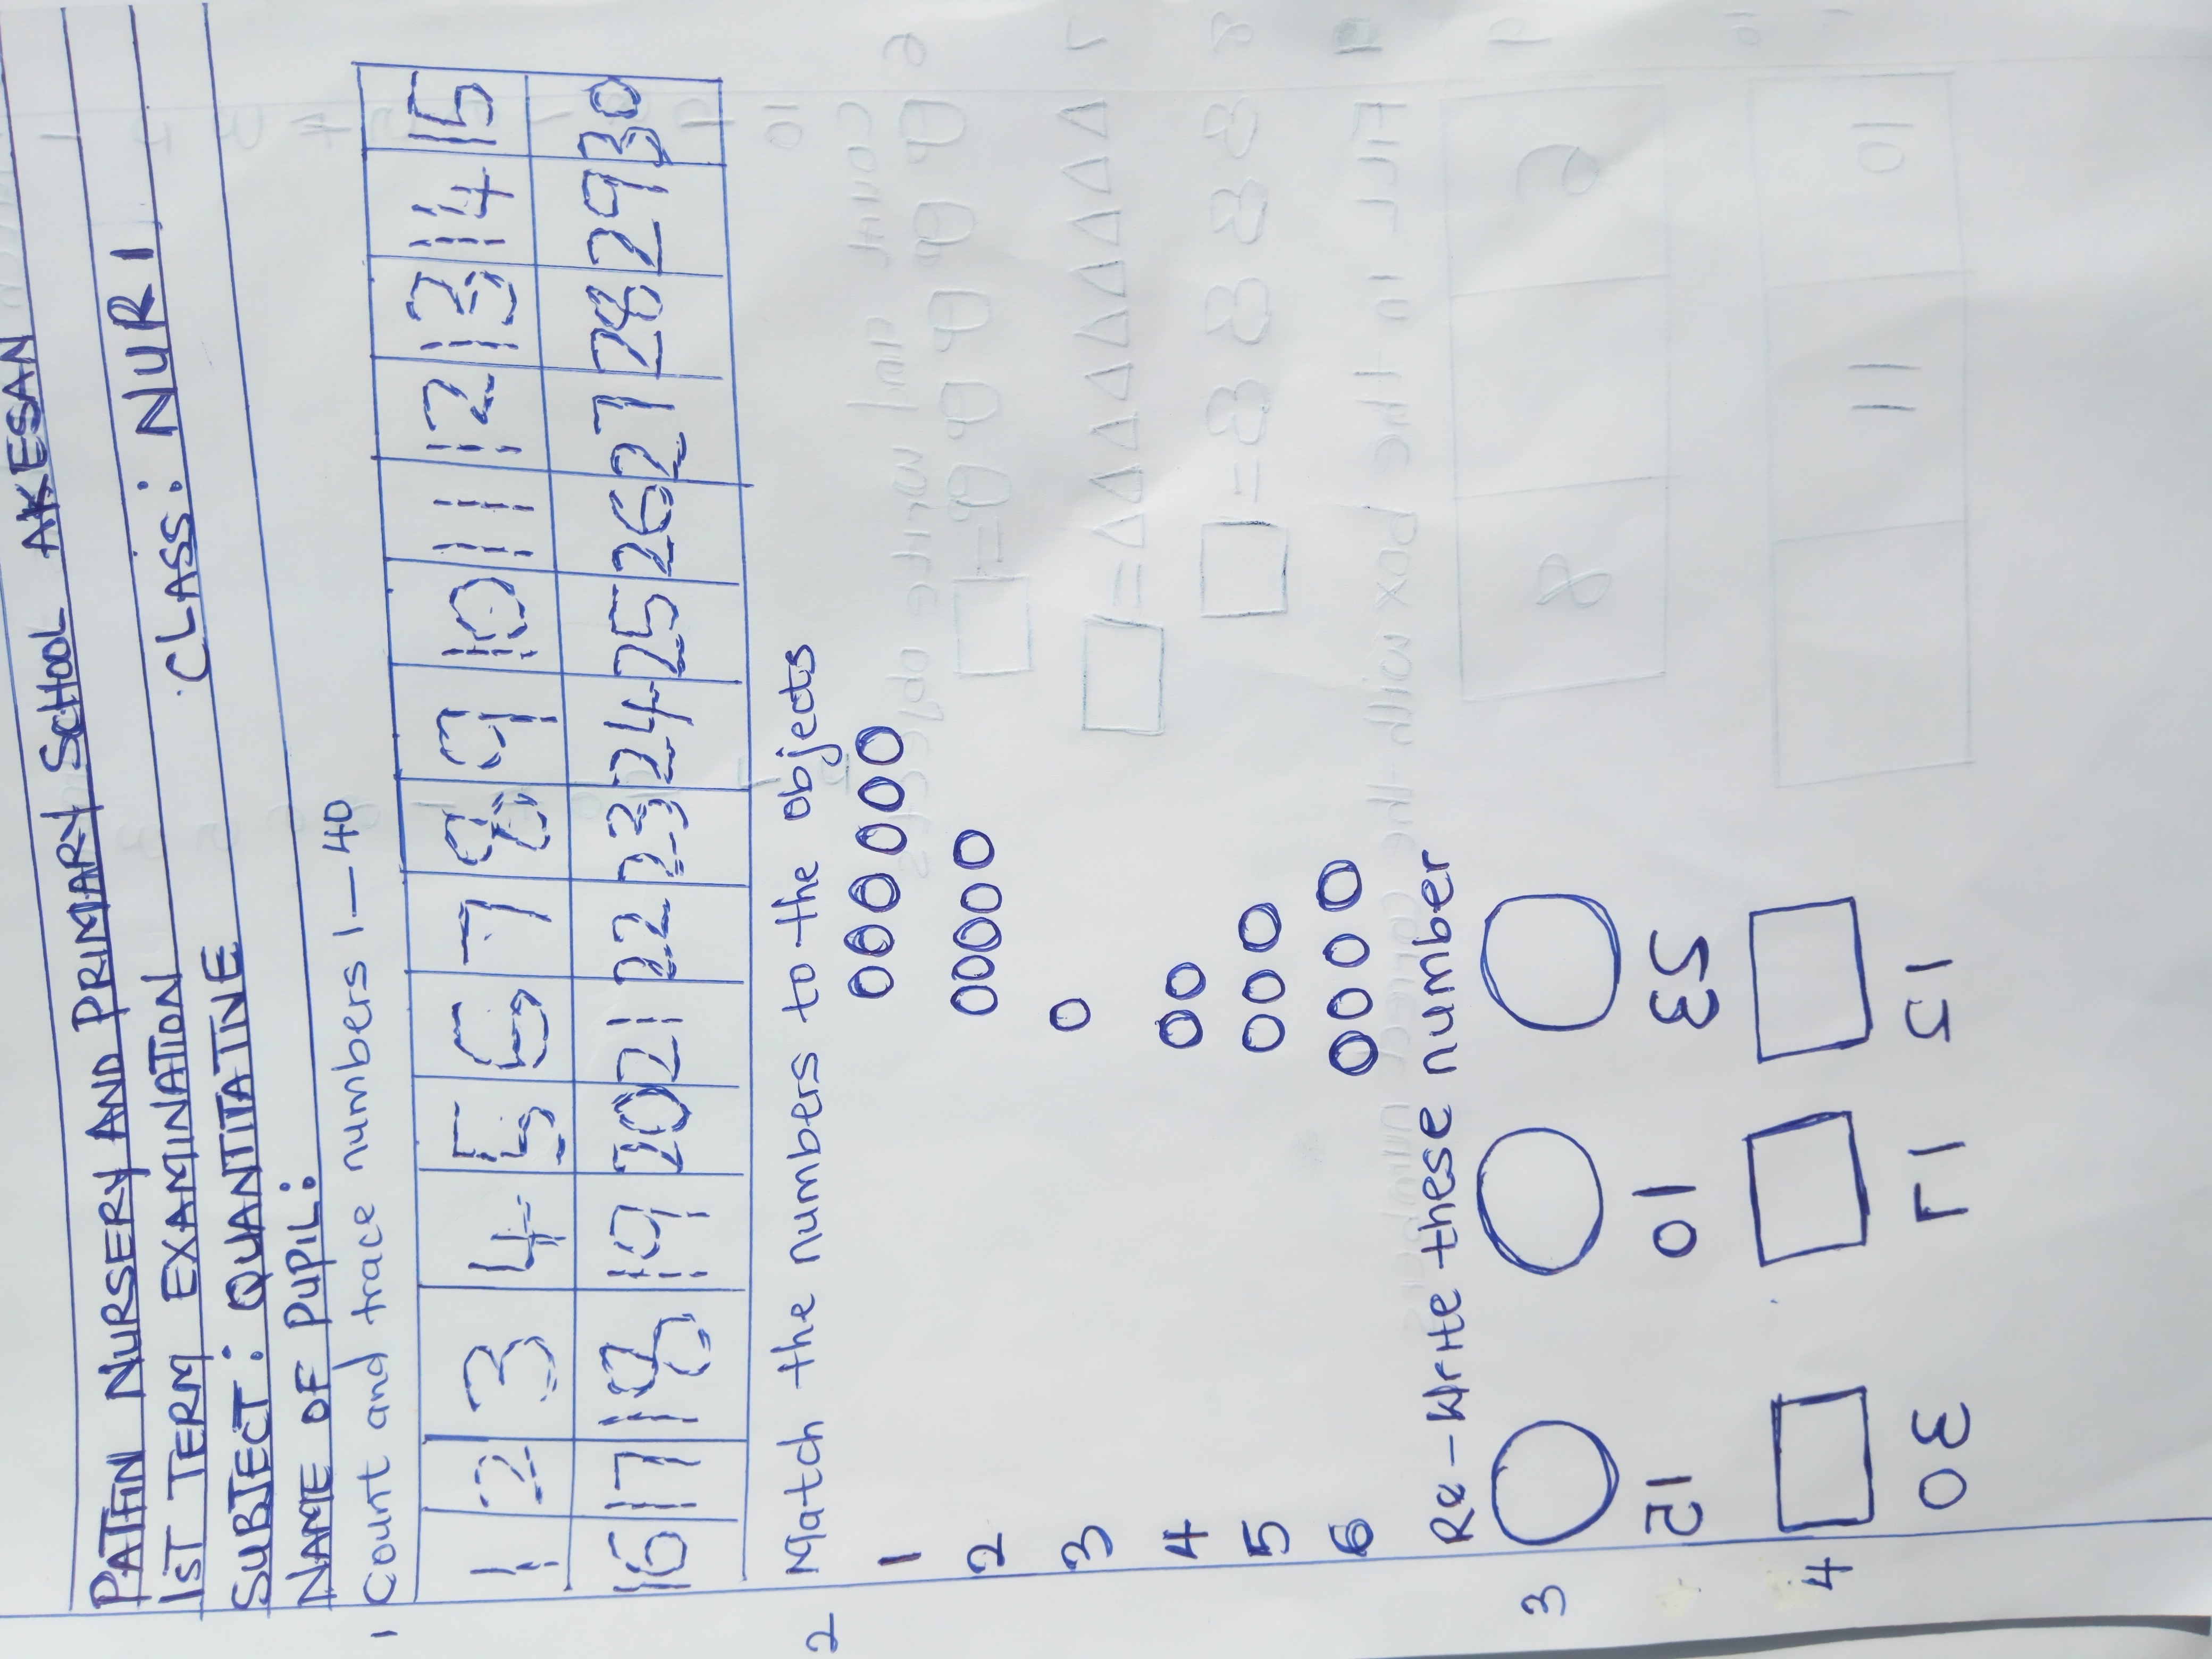 PATFIN NURSERY AND PRIMARY SCHOOL AKESAN
1ST TERM EXAMINATION CLASS: NUR 1
SUBJECT: QUANTITATIVE
NAME OF PUPIL:
1 Count and trace numbers 1-40
1 2 3 4 5 6 7 8 9 10 11 12 13 14 15
16 17 18 19 20 21 22 23 24 25 26 27 28 29 30
2 Match the numbers to the objects
1
2
3
4
5
6
Re-write these number
3
01
4
0Ɛ